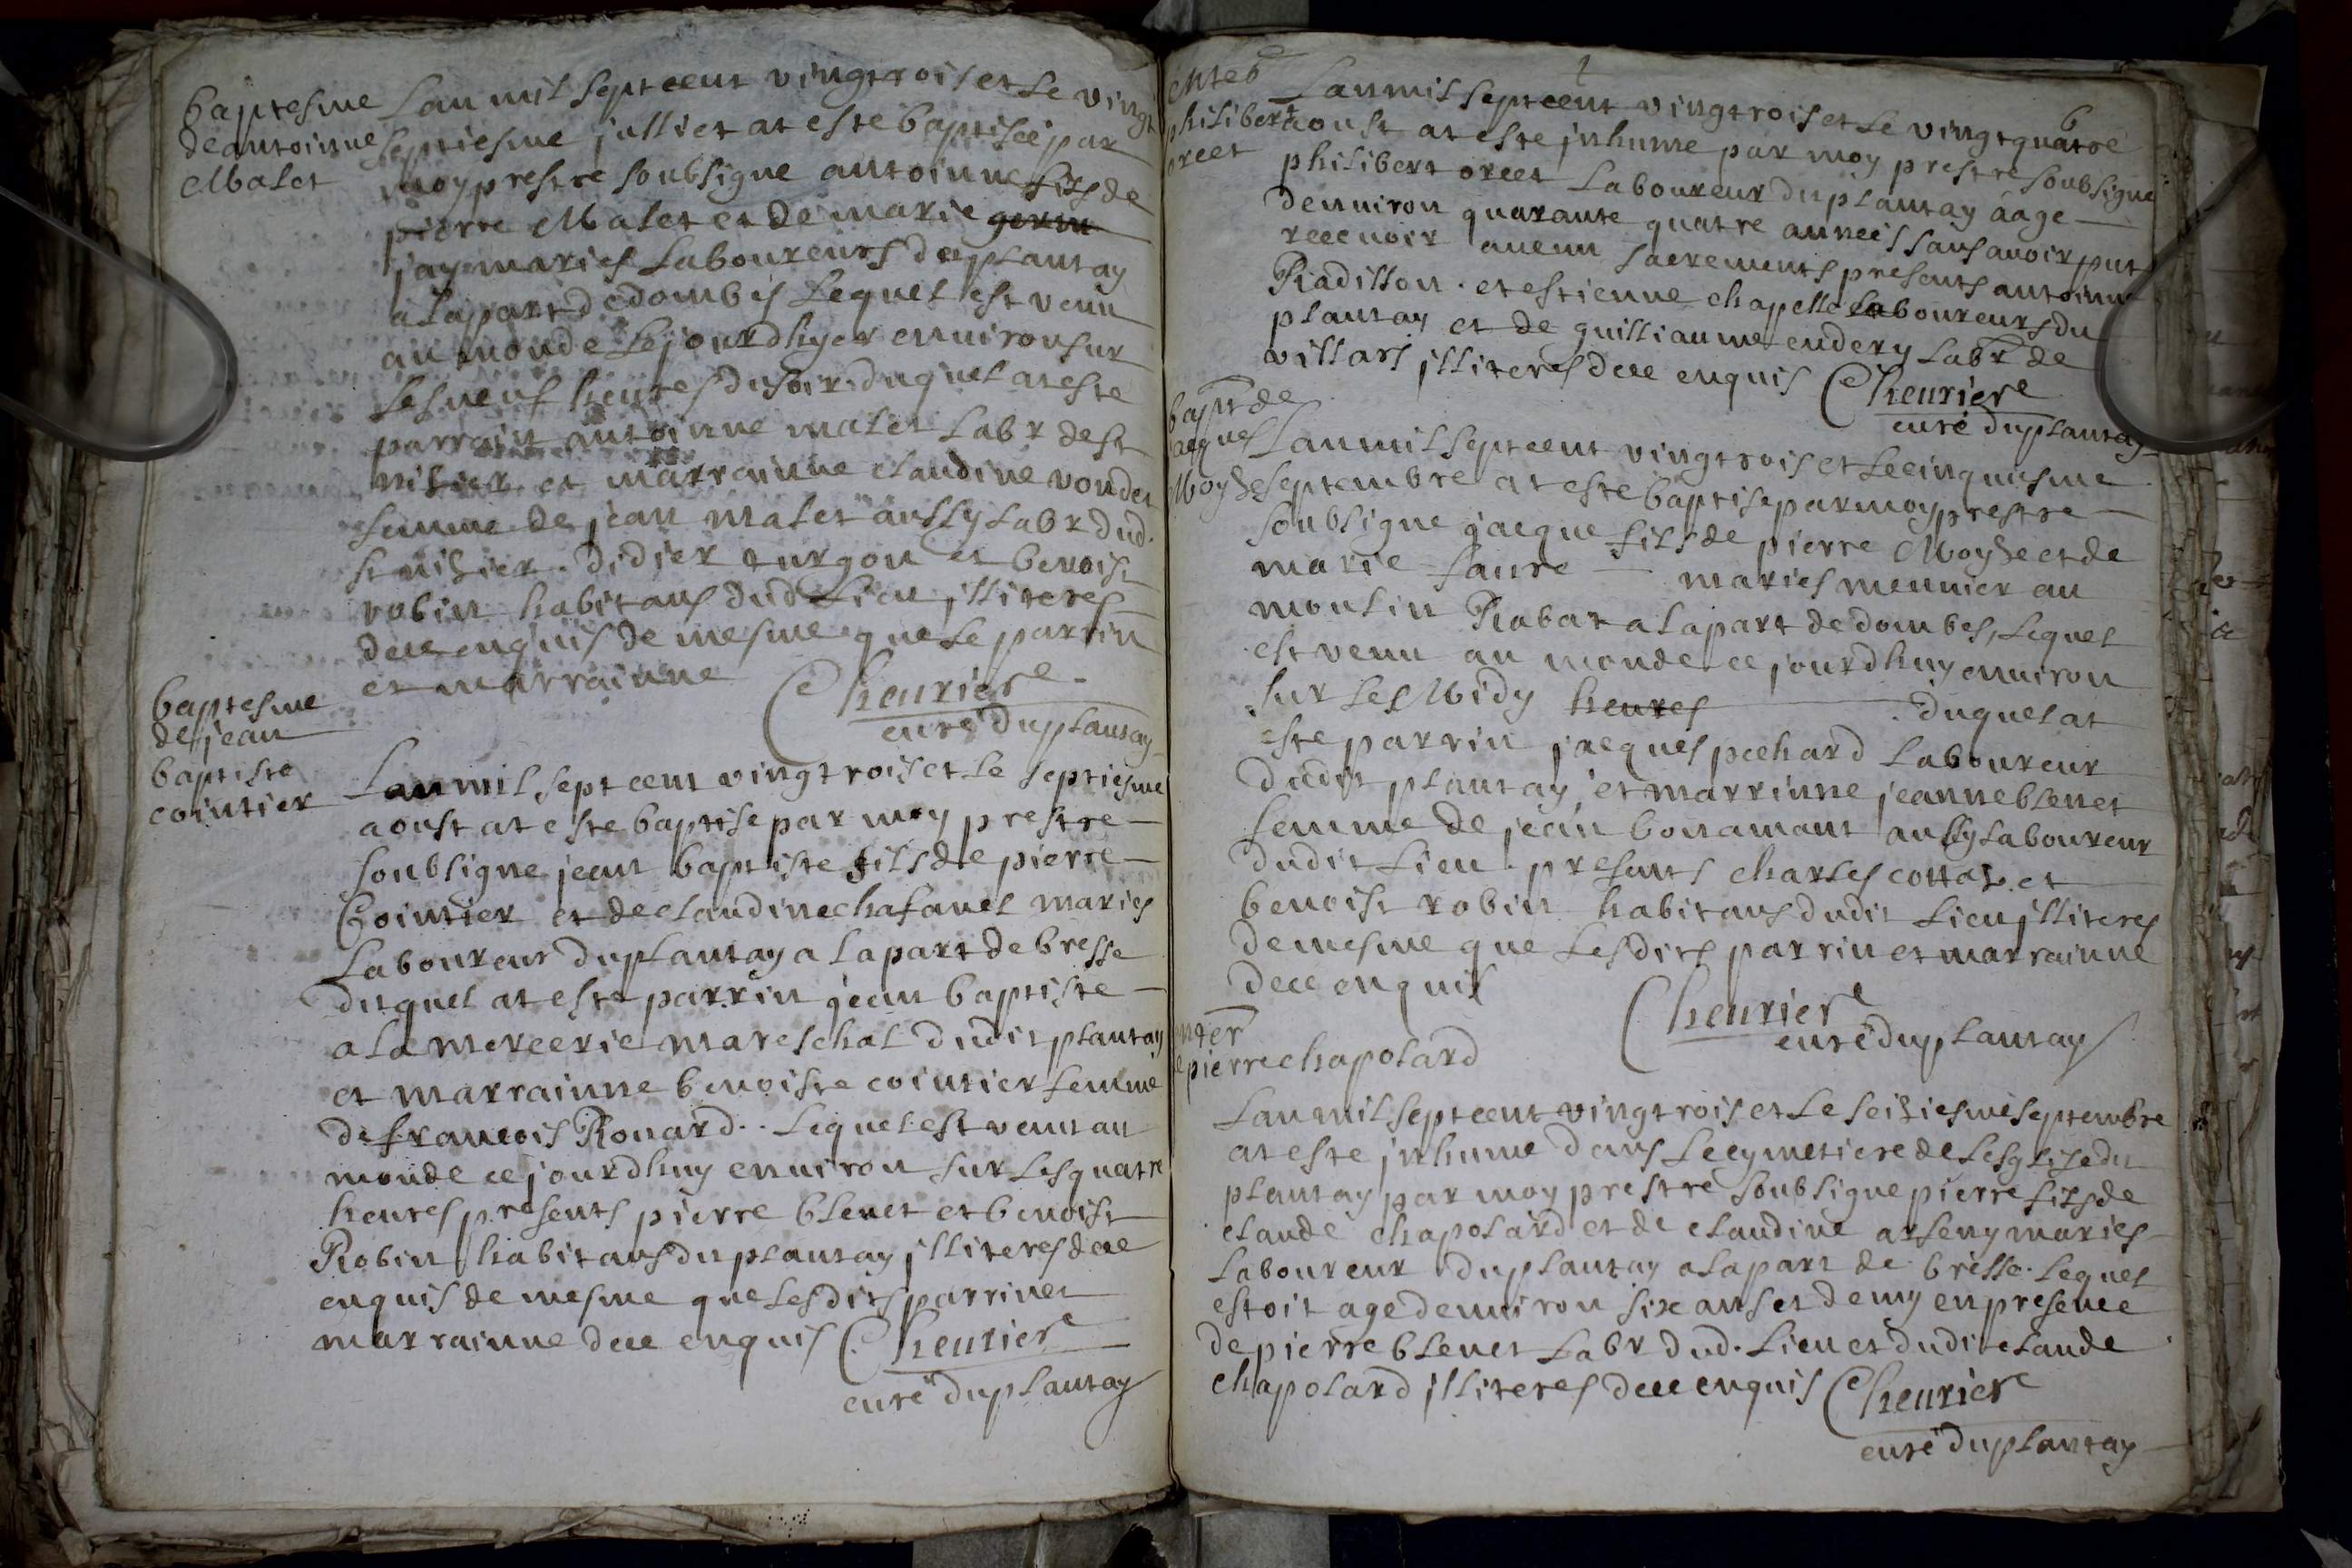 baptesme
de antoinne
Malet
Lan mil sept cent vingtrois et le vingt
septiesme jullict at este baptisée par
moy prestre soubsigne antoinne fils de
pierre Malet et de marie germ
jay maries Laboureurs du plantay
a la part de dombes Lequel est venu
au monde Lejourdhyer environ sur
les neuf heures du soir. duquel at este
parrain antoinne malet Labr de st
nisier et marrainne claudine vondet
femme de jean malet aussy labr dud.
st nisier. didier turgon et benoist
robin habitans dud Lieu illiteres
dece enquis de mesme que le parrin
et marrainne
Cheuriere
curé du plantay
baptesme
de jean
baptiste
cointier
Lan mil sept cent vingtrois et le septiesme
aoust at este baptise par moy prestre
soubsigne jean baptiste fils de pierre
Cointier et de claudine chafanel maries
Laboureur du plantay a la part de bresse
duquel at este parrin jean baptiste
ala mercerie mareschal dudit plantay
et marrainne benoiste cointier femme
de francois Ronard.. Lequel est venu au
monde ce jourdhuy environ sur les quatre
heures presents pierre blenet et benoist
Robin habitans du plantay illiteres dece
enquis de mesme que lesdits parrinet
marrainne dece enquis Cheuriere
curé du plantay
6
enteb
philibert
orcet
Lan mil sept cent vingtrois et le vingtquatre
aoust at este inhume par moy prestre soubsigne
philibert orcet Laboureur du plantay aage
denuiron quarante quatre années sans auoir put
receuoir aucun sacrements presents antoinne
Radisson. et estienne chapelle laboureurs du
plantay et de guilliaume endery Labr de
villars illiteres dece enquis Cheuriere
curé du plantay
bapt de
jacques
Moyze
Lan mil sept cent vingtrois et le cinquiesme
septembre at este baptise par moy prestre
soubsigne jacque fils de pierre Moyze et de
marie faure maries meunier au
moulin Rabat a la part de dombes, Lequel
est venu au monde ce jourdhuy enuiron
sur les Midy heures . duquel at
este parrin jacques pechard Laboureur
dudit plantay, et marrinne jeanne blenet
femme de jean bonamant aussy laboureur
dudit Lieu. presents charles cottaz et
benoist robin habitans dudit Lieu illiteres
demesme que lesdits parrin et marrainne
dece enquis
Cheuriere
curé du plantay
enter
de pierre chapolard
Lan mil sept cent vingtrois et le seiziesme septembre
at este inhume dans le cymetiere de lesglise du
plantay par moy prestre soubsigne pierre fils de
claude chapolard et de claudine arseny maries
Laboureur du plantay a la part de bresse. Lequel
estoit age denuiron six ans et demy en presence
de pierre blenet Labr dud. Lieu et dudit claude
chapolard illiteres dece enquis Cheuriere
curé du plantay